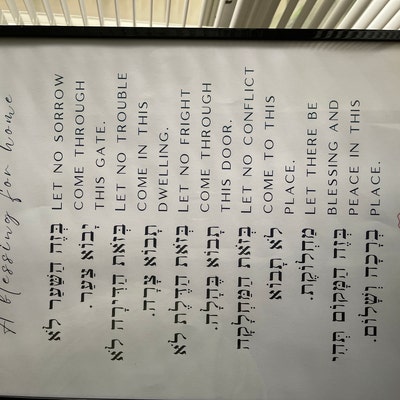 A blessing for home
בְּזֶה הַשַּׁעַר לֹא
יָבוֹא צַעַר.
בְּזֹאת הַדִּירָה לֹא
תָבוֹא צָרָה.
בְּזֹאת הַדֶּלֶת לֹא
תָבוֹא בֶּהָלָה.
בְּזֹאת הַמַּחְלָקָה
לֹא תָבוֹא
מַחְלוֹקֶת.
בְּזֶה הַמָּקוֹם תְּהִי
בְּרָכָה וְשָׁלוֹם.
LET NO SORROW
COME THROUGH
THIS GATE.
LET NO TROUBLE
COME IN THIS
DWELLING.
LET NO FRIGHT
COME THROUGH
THIS DOOR.
LET NO CONFLICT
COME TO THIS
PLACE.
LET THERE BE
BLESSING AND
PEACE IN THIS
PLACE.